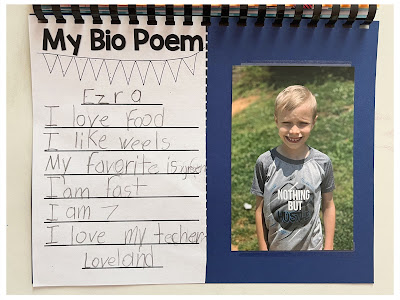 My Bio Poem
Ezra
I love food
I like weels
My favorite is
I'am fast
I am 7
I love my techer
Loveland
NOTHING
BUT
HUSTLE